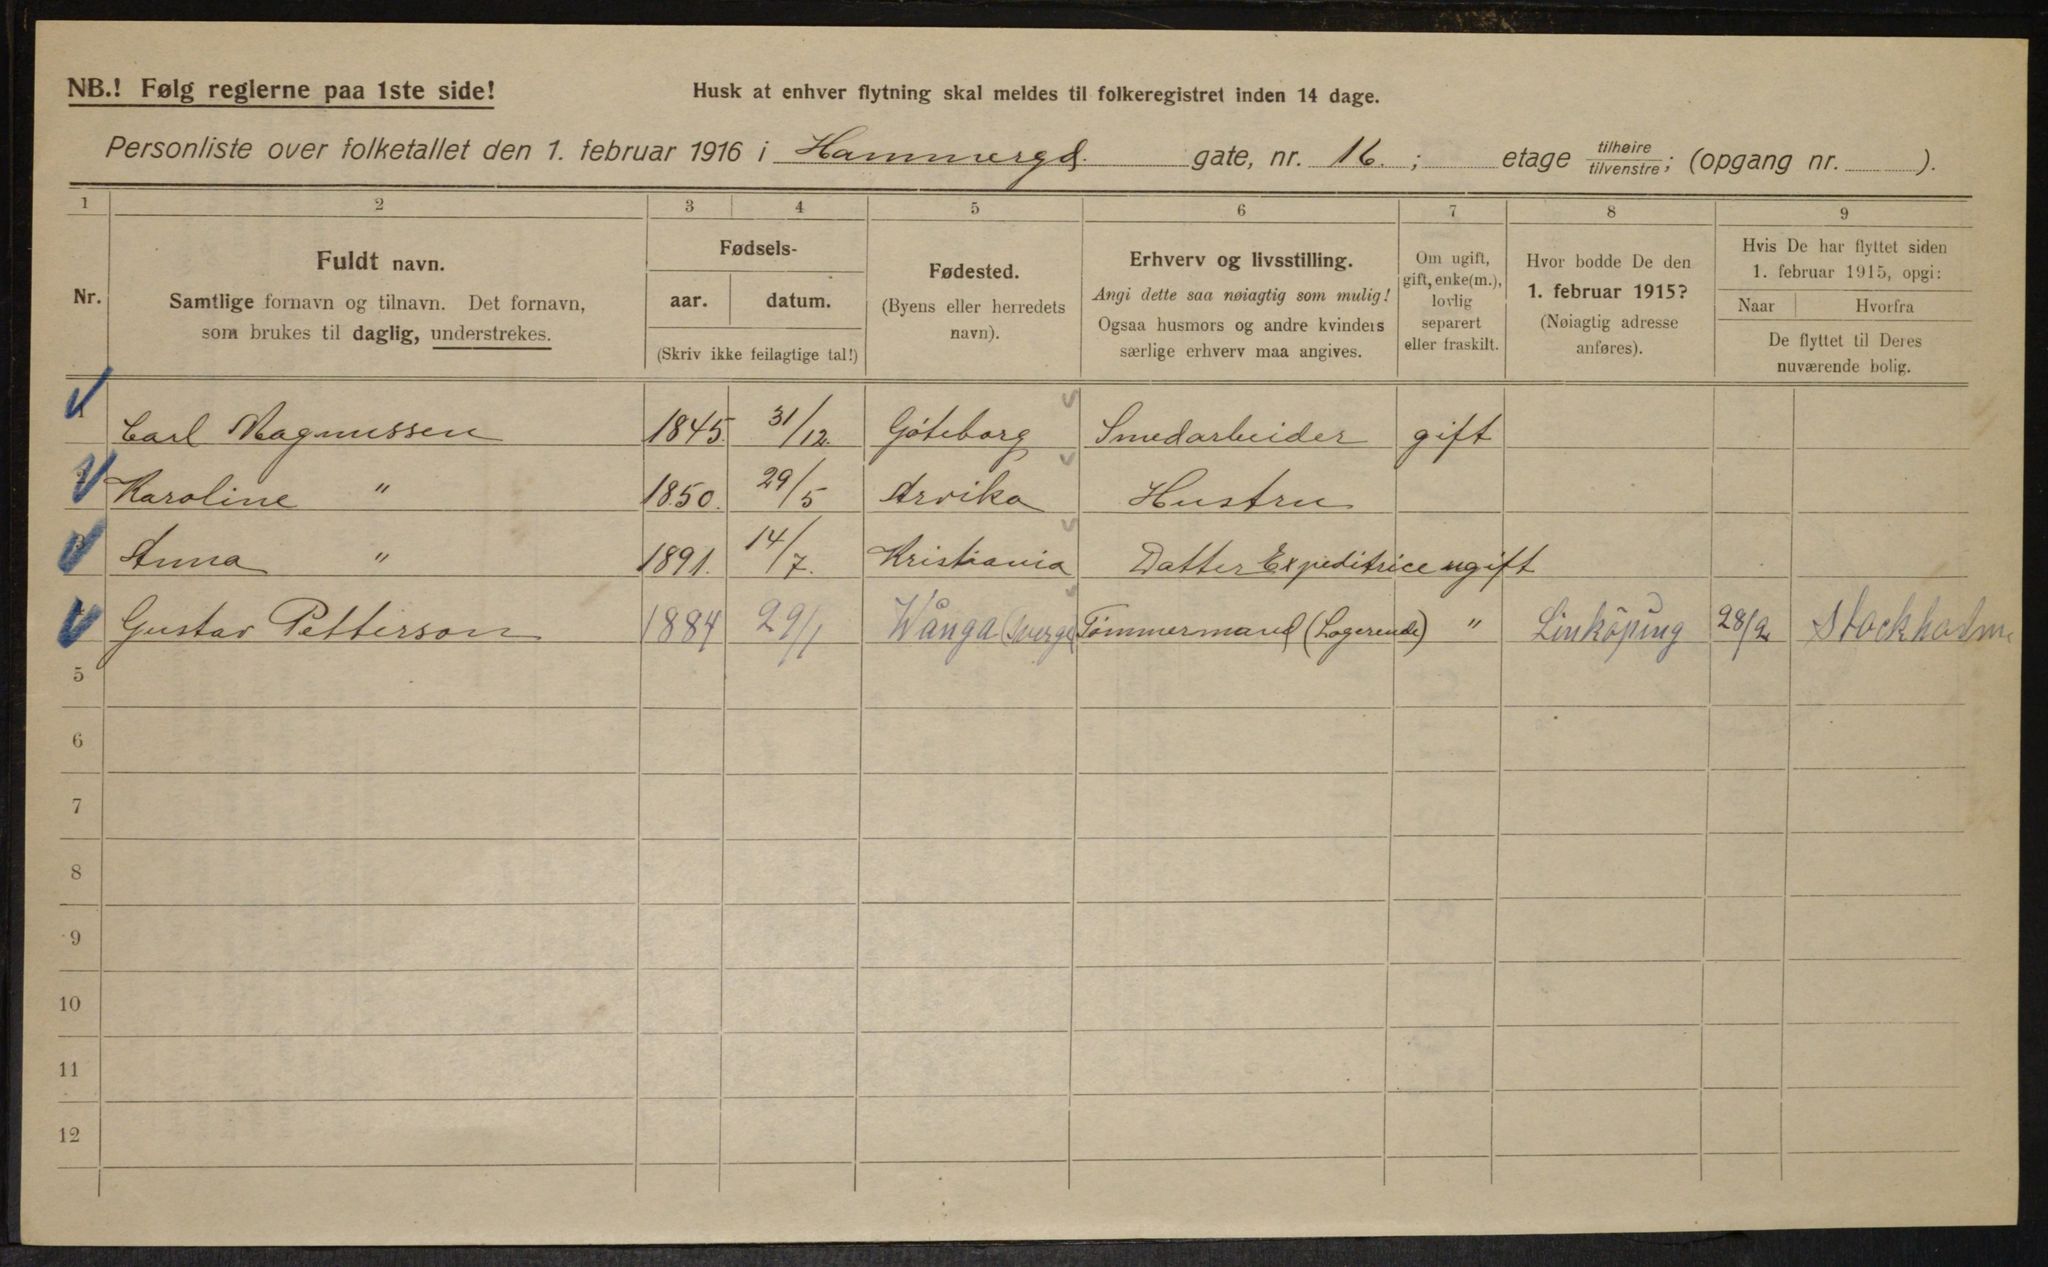 NB.! Følg reglerne paa 1ste side!
Husk at enhver flytning skal meldes til folkeregistret inden 14 dage.
Personliste over folketallet den 1. februar 1916 i Hammergd. gate, nr. 16. ; etage tilhøire/tilvenstre; (opgang nr. ).
1 2 3 4 5 6 7 8 9
Nr.
Fuldt navn.
Samtlige fornavn og tilnavn. Det fornavn,
som brukes til daglig, understrekes.
Fødsels-
aar. datum.
(Skriv ikke feilagtige tal!)
Fødested.
(Byens eller herredets
navn).
Erhverv og livsstilling.
Angi dette saa nøiagtig som mulig!
Ogsaa husmors og andre kvinders
særlige erhverv maa angives.
Om ugift,
gift, enke(m.),
lovlig
separert
eller fraskilt.
Hvor bodde De den
1. februar 1915?
(Nøiagtig adresse
anføres).
Hvis De har flyttet siden
1. februar 1915, opgi:
Naar Hvorfra
De flyttet til Deres
nuværende bolig.
Carl Magnussen 1845. 31/12. Göteborg Smedarbeider gift
Karoline " 1850. 29/5 Arvika Hustru
Anna " 1891. 14/7. Kristiania Datter Expeditrice ugift
Gustav Petterson 1884 29/1 Wånga (Sverge) Tömmermand (Logerende) " Linköping 28/2 Stockholm
5
6
7
8
9
10
11
12